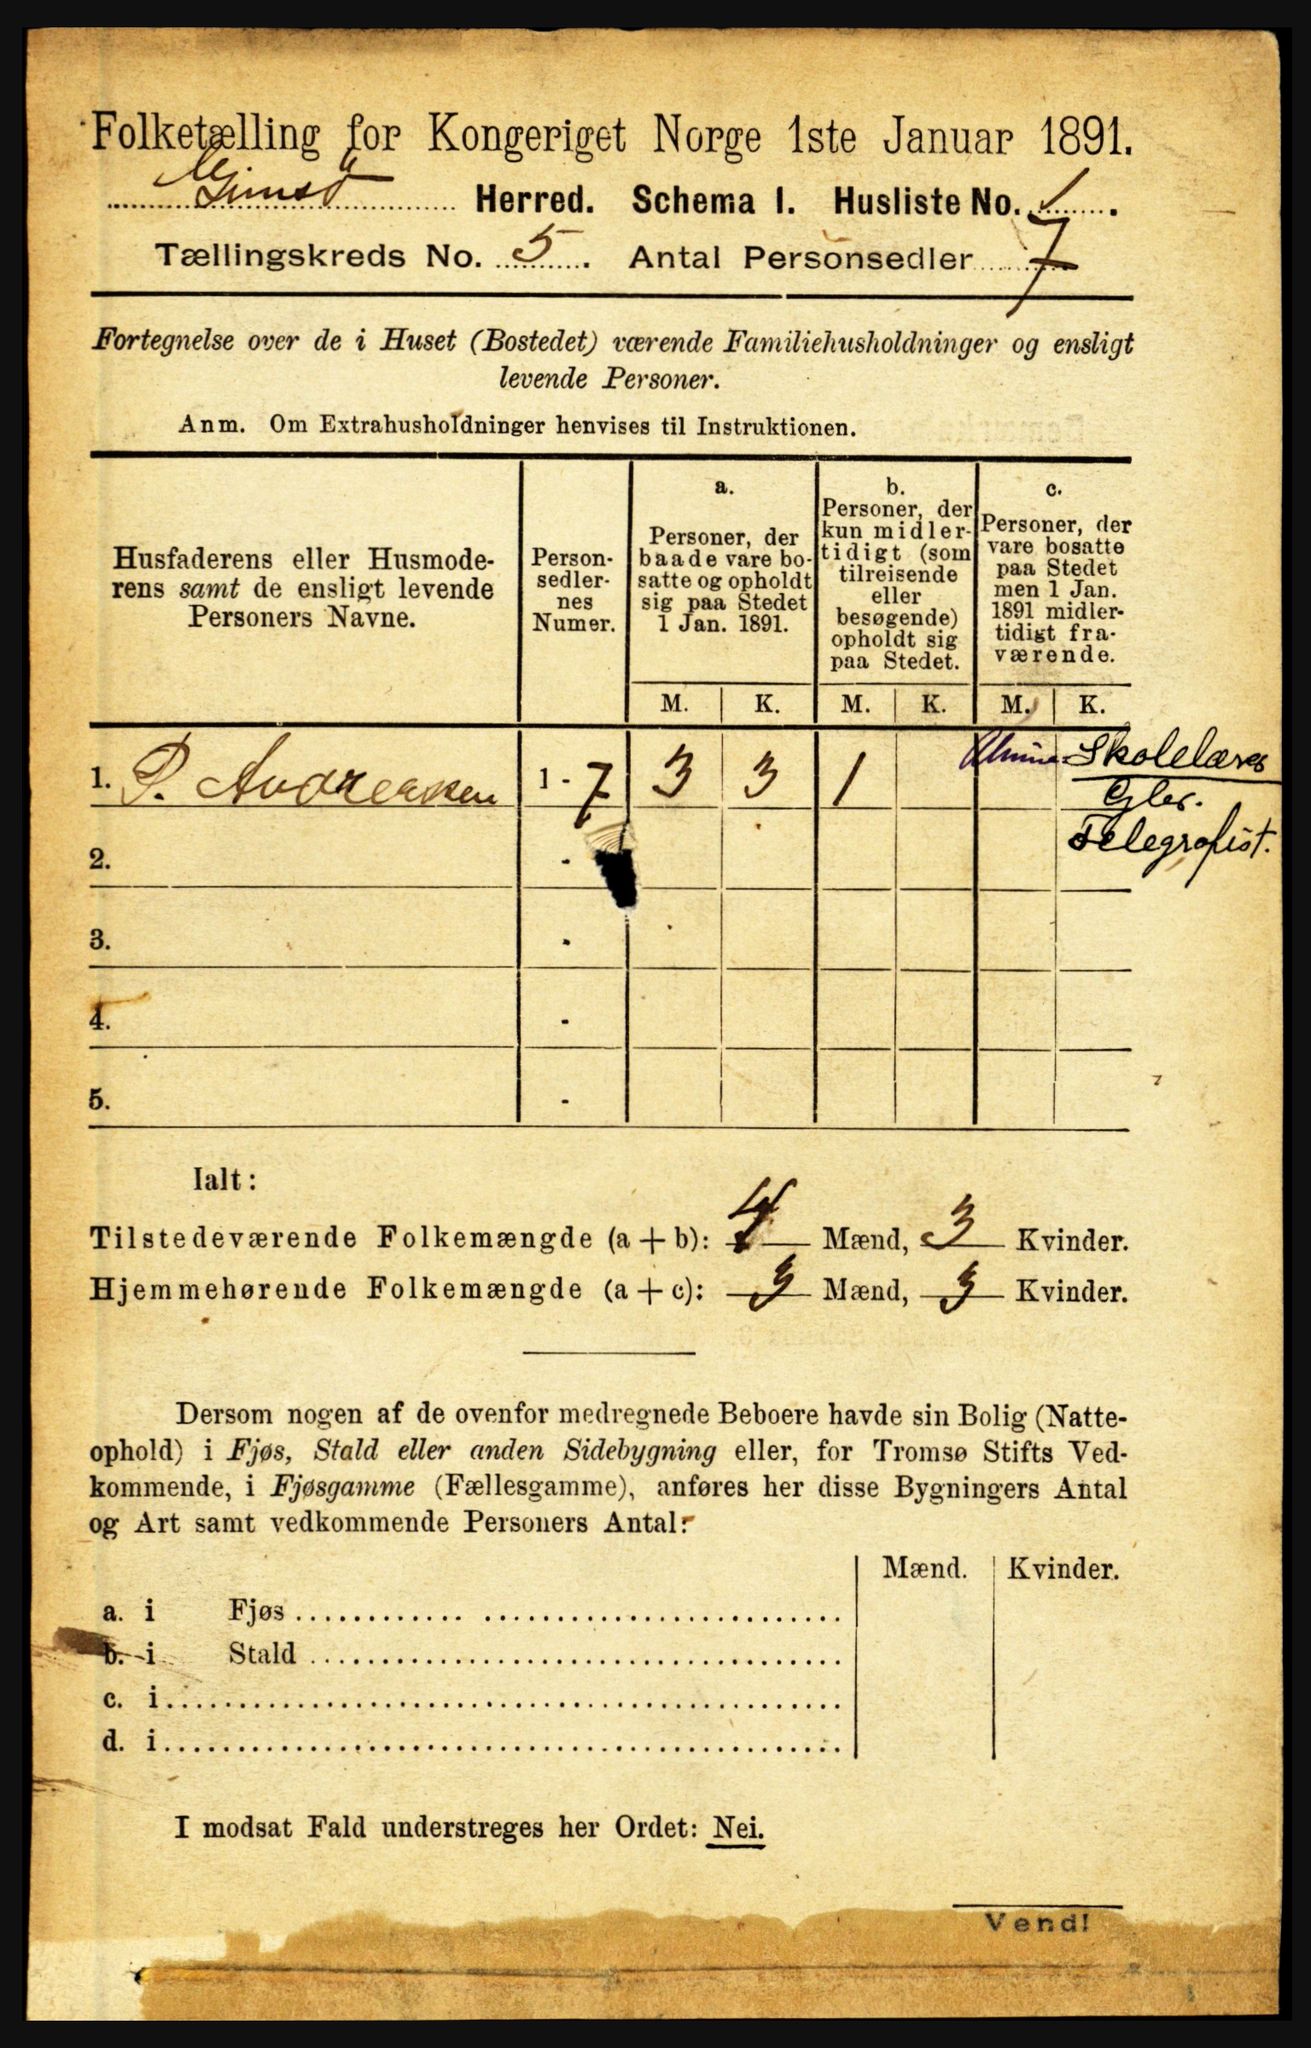 Folketælling for Kongeriget Norge 1ste Januar 1891.
Gimsø Herred. Schema I. Husliste No. 1.
Tællingskreds No. 5. Antal Personsedler 7
Fortegnelse over de i Huset (Bostedet) værende Familiehusholdninger og ensligt
levende Personer.
Anm. Om Extrahusholdninger henvises til Instruktionen.
Husfaderens eller Husmode-
rens samt de ensligt levende
Personers Navne.
Person-
sedler-
nes
Numer.
a.
Personer, der
baade vare bo-
satte og opholdt
sig paa Stedet
1 Jan. 1891.
b.
Personer, der
kun midler-
tidigt (som
tilreisende
eller
besøgende)
opholdt sig
paa Stedet.
c.
Personer, der
vare bosatte
paa Stedet
men 1 Jan.
1891 midler-
tidigt fra-
værende.
M. K. M. K. M. K.
1. P. Andreasen 1 - 7 3 3 1 Skolelærer
Telegrafist.
2. -
3. -
4. -
5. -
Ialt:
Tilstedeværende Folkemængde (a + b): 4 Mænd, 3 Kvinder.
Hjemmehørende Folkemængde (a + c): 3 Mænd, 3 Kvinder.
Dersom nogen af de ovenfor medregnede Beboere havde sin Bolig (Natte-
ophold) i Fjøs, Stald eller anden Sidebygning eller, for Tromsø Stifts Ved-
kommende, i Fjøsgamme (Fællesgamme), anføres her disse Bygningers Antal
og Art samt vedkommende Personers Antal:
Mænd. Kvinder.
a. i Fjøs
b. i Stald
c. i
d. i
I modsat Fald understreges her Ordet: Nei.
Vend!